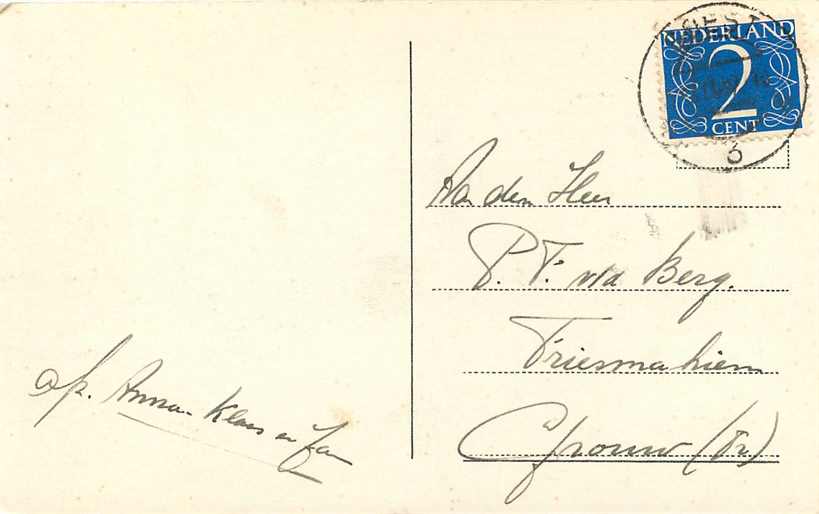 NEDERLAND
2
CENT
6
Aan den Heer
P. F. v/d Berg.
Friesmahiem
Grouw (Fr)
afz. Anna- Klaas en Jan